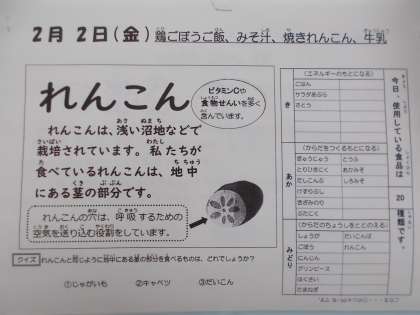 2月 2日(金) 鶏ごぼうご飯、みそ汁、焼きれんこん、牛乳
れんこん
ビタミンCや
食物せんいを多く
含んでいます。
れんこんは、浅い沼地などで
栽培されています。私たちが
食べているれんこんは、地中
にある茎の部分です。
れんこんの穴は、呼吸するための
空気を送り込む役割をしています。
クイズ れんこんと同じように地中にある茎の部分を食べるものは、どれでしょうか?
①じゃがいも ②キャベツ ③だいこん
今日、使用している食品は 20 種類です。
き
(エネルギーのもとになる)
ごはん
サラダあぶら
さとう
あか
(からだをつくるもとになる)
ぎゅうにゅう とうふ
とりひきにく あかみそ
だしこんぶ しろみそ
けずりぶし
きざみのり
ぶたにく
みどり
(からだのちょうしをととのえる)
しょうが だいこんば
ごぼう れんこん
にんじん
グリンピース
はくさい
たまねぎ